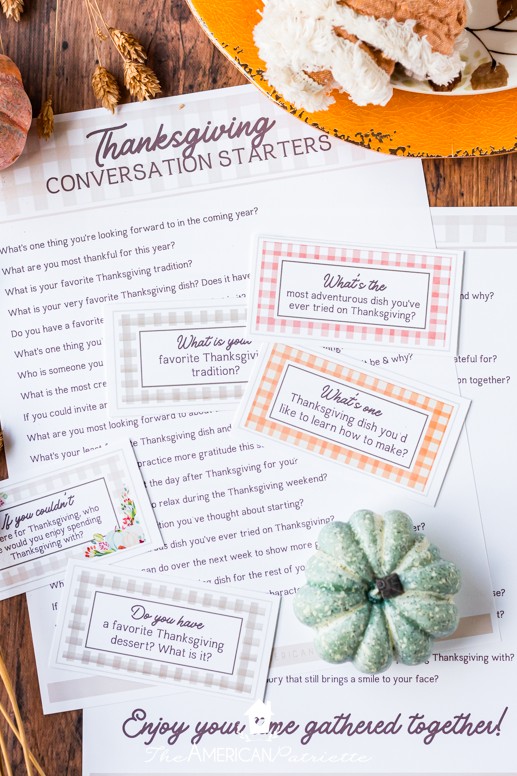 Thanksgiving
CONVERSATION STARTERS
What's one thing you're looking forward to in the coming year?
What are you most thankful for this year?
What is your favorite Thanksgiving tradition?
What is your very favorite Thanksgiving dish? Does it have
Do you have a favorite
What's one thing you
Who is someone you
What is the most
If you could invite
What are you most looking forward to about
What's your least favorite Thanksgiving dish and
practice more gratitude this
the day after Thanksgiving for you?
relax during the Thanksgiving weekend?
you've thought about starting?
dish you've ever tried on Thanksgiving?
can do over the next week to show more
dish for the rest of
and why?
be & why?
grateful for?
together?
Thanksgiving with?
that still brings a smile to your face?
What's the
most adventurous dish you've
ever tried on Thanksgiving?
What is your
favorite Thanksgiving
tradition?
What's one
Thanksgiving dish you'd
like to learn how to make?
If you couldn't
here for Thanksgiving, who
would you enjoy spending
Thanksgiving with?
Do you have
a favorite Thanksgiving
dessert? What is it?
Enjoy your time gathered together!
The AMERICAN Patriette